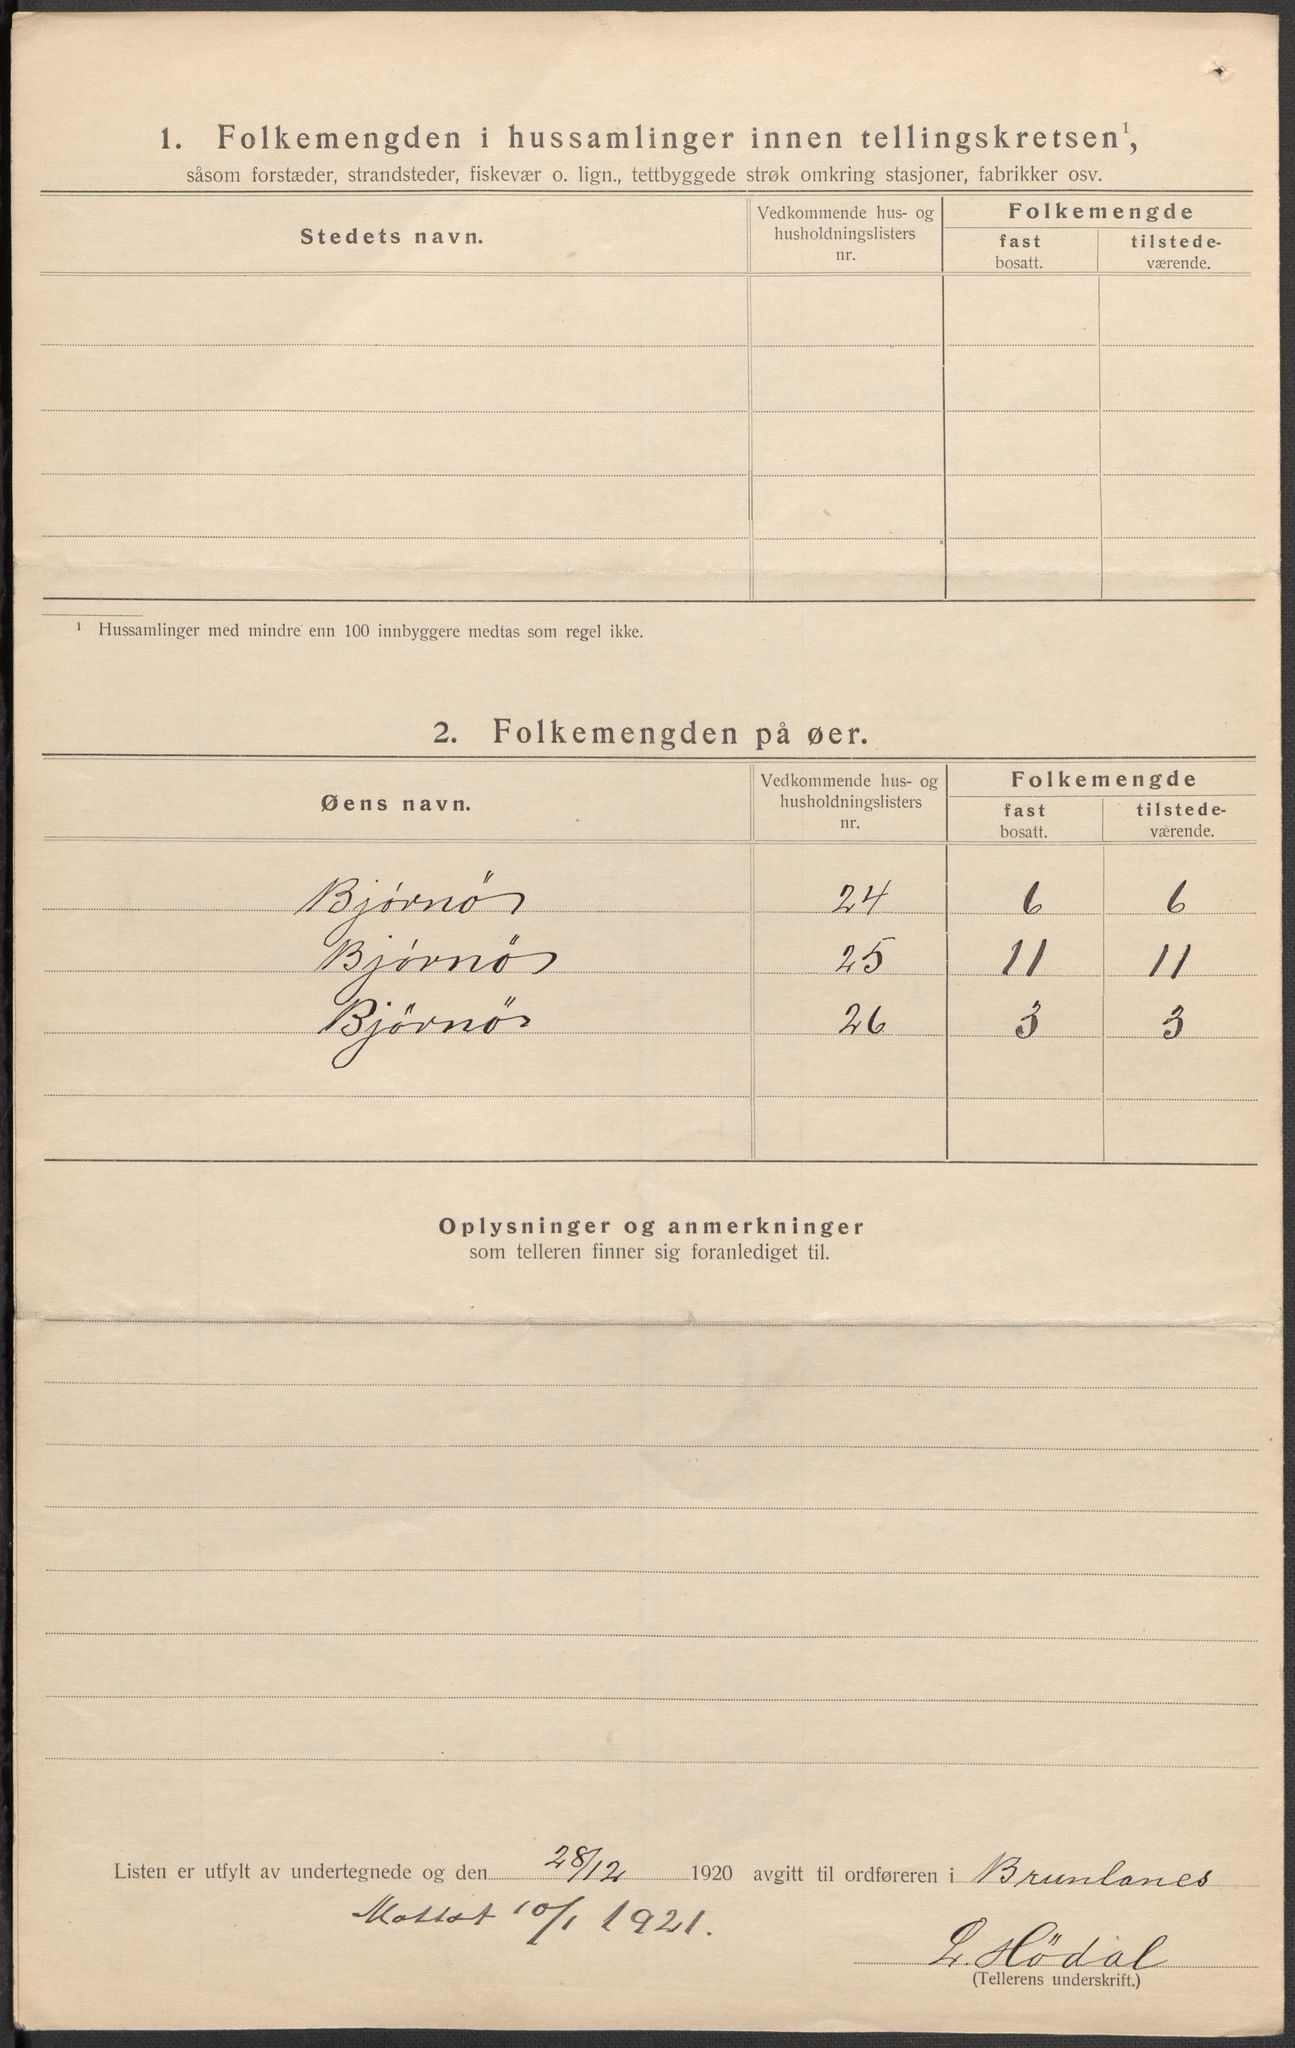 1. Folkemengden i hussamlinger innen tellingskretsen¹,
såsom forstæder, strandsteder, fiskevær o. lign., tettbyggede strøk omkring stasjoner, fabrikker osv.
Stedets navn.
Vedkommende hus- og
husholdningslisters
nr.
Folkemengde
fast
bosatt.
tilstede-
værende.
¹ Hussamlinger med mindre enn 100 innbyggere medtas som regel ikke.
2. Folkemengden på øer.
Øens navn.
Vedkommende hus- og
husholdningslisters
nr.
Folkemengde
fast
bosatt.
tilstede-
værende.
Bjørnö 24 6 6
Bjørnö 25 11 11
Björnö 26 3 3
Oplysninger og anmerkninger
som telleren finner sig foranlediget til.
Listen er utfylt av undertegnede og den 28/12 1920 avgitt til ordføreren i Brunlanes
Mottat 10/1 1921.
L. Hödal
(Tellerens underskrift.)